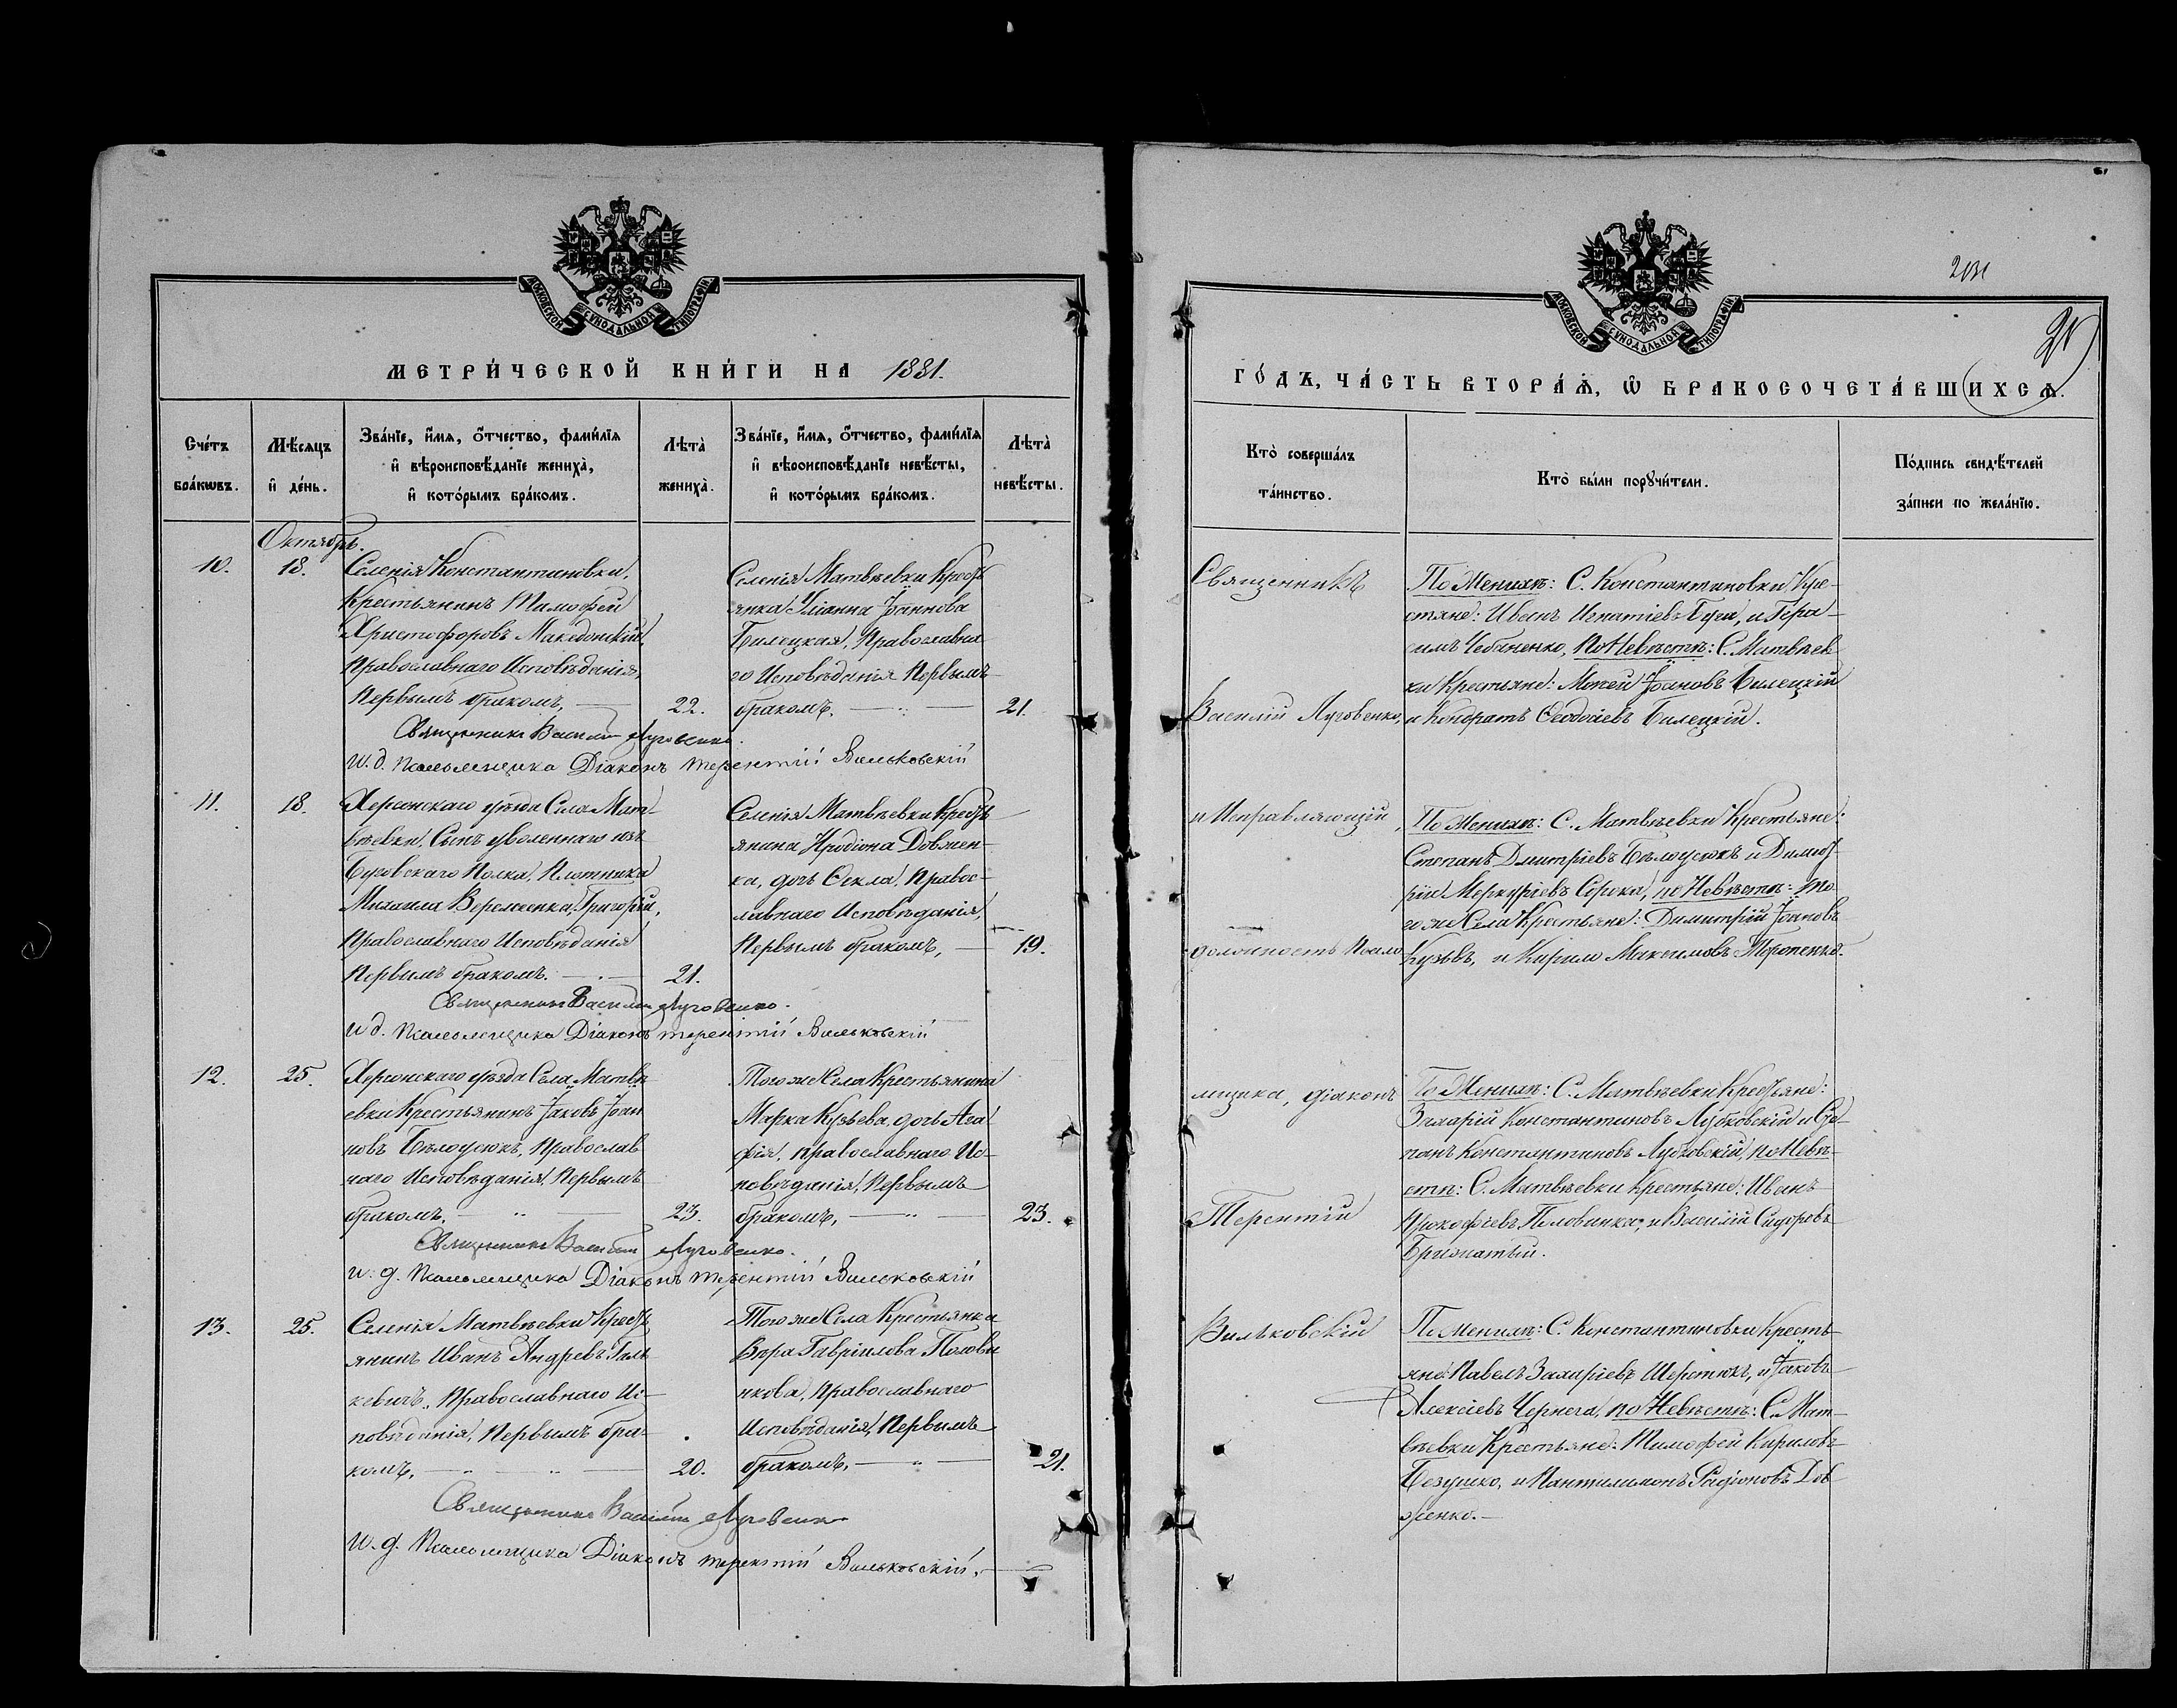 МОСКОВСКОЙ СѴНОДАЛЬНОЙ ТИПОГРАФІИ.
МЕТРИ́ЧЕСКОЙ КНИ́ГИ НА 1881.
Сче́тъ бра́кωвъ.
Мѣ́сяцъ и҆ де́нь.
Зва́нїе, и҆́мѧ, ѻ҆́тчество, фами́лїѧ
и҆ вѣроисповѣ́данїе жениха̀,
и҆ кото́рымъ бра́комъ.
Лѣта̀ жениха̀.
Зва́нїе, и҆́мѧ, ѻ҆́тчество, фами́лїѧ
и҆ вѣроисповѣ́данїе невѣ́сты,
и҆ кото́рымъ бра́комъ.
Лѣта̀ невѣ́сты.
Октябрь.
10.
18.
Селенія Константиновки,
Крестьянинъ Тимофей
Христофоровъ Македонскій,
Православнаго Исповѣданія,
Первымъ бракомъ,
22.
Селенія Матвѣевки Кресть
янка Іоаннова
Билецкая, Православна
го Исповѣданія Первымъ
бракомъ.
21.
Священникъ Василій Луговенко.
И. д. Псаломщика Діаконъ Терентій Вильковскій
11.
18.
Херсонскаго уѣзда Села Мат-
вѣевки, Сынъ уволеннаго изъ
Бугскаго Полка, Плотника
Михаила Григорій,
Православнаго Исповѣданія
Первымъ бракомъ.
21.
Селенія Матвѣевки Кресть
янина Иродіона Довжен-
ка, дочь Ѳекла, Правос-
лавнаго Исповѣданія,
Первымъ бракомъ,
19.
Священникъ Василій Луговенко.
И д. Псаломщика Діаконъ Терентій Вильковскій
12.
25.
Херсонскаго уѣзда Села Матвѣ
евки Крестьянинъ Іаковъ Іоан
новъ Бѣлоусюкъ, Православ
наго Исповѣданія, Первымъ
бракомъ.
23.
Того же Села Крестьянина
Марка Кузьева, дочь Ага
фія, православнаго Ис-
повѣданія, Первымъ
бракомъ,
23.
Священникъ Василій Луговенко.
И. д. Псаломщика Діаконъ Терентій Вильковскій
13.
25.
Селенія Матвѣевки Кресть
янинъ Иванъ Андреевъ
кевичъ, Православнаго Ис-
повѣданія, Первымъ бра
комъ,
20.
Того же Села Крестьянка
Вѣра Гавріилова Полови
нкова, Православнаго
Исповѣданія, Первымъ
бракомъ,
21.
Священникъ Василій Луговенко
И. д. Псаломщика Діаконъ Терентій Вильковскій.
МОСКОВСКОЙ СѴНОДАЛЬНОЙ ТИПОГРАФІИ.
ГО́ДЪ, ЧА́СТЬ ВТОРА́Ѧ, Ѡ҆ БРАКОСОЧЕТА́ВШИХСѦ.
Кто̀ соверша́лъ
та́инство.
Кто̀ бы́ли порꙋчи́тели.
По́дпись свидѣ́телей
за́писи по жела́нїю.
Священникъ
Василій Луговенко,
и Исправляющій
должность Псало
мщика, діаконъ
Терентій
Вильковскій
По Женихѣ: С. Константиновки Кре-
стяне: Иванъ Игнатіевъ и Гера-
симъ Чебаненко, по Невѣстѣ: С. Матвѣев
ки Крестьяне: Мокей Іоановъ Билецкій
и Кондратъ Ѳеодосіевъ Билецкій.
По Женихѣ: С. Матвѣевки Крестьяне:
Степанъ Дмитріевъ Бѣлоусюкъ и Димит
рій Меркуріевъ Сорока, по Невѣстѣ: То
го же Села Крестьяне: Димитрій Іоановъ
Кузьвъ, и Кирилъ Максимовъ
По Женихѣ: С. Матвѣевки Крестьяне:
Захарій Константиновъ и Сте-
панъ Константиновъ по Невѣ-
стѣ: С. Матвѣевки Крестьяне: Иванъ
Прокофіевъ Половинка, и Василій Сидоровъ
По Женихѣ: С. Константиновки Кресть-
яне Павелъ Захаріевъ Шерстюкъ, и Іаковъ
Алексіевъ Чернега, по Невѣстѣ: С. Мат-
вѣевки Крестьяне: Тимофей Кириловъ
и Пантилимонъ Радіоновъ Дов
женко.